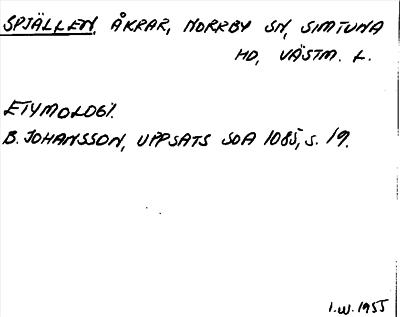 SPJÄLLEN, ÅKRAR, NORRBY SN, SIMTUNA
HD, VÄSTM. L.
ETYMOLOGI.
B. JOHANSSON, UPPSATS SOA 1085, S. 19.
I.W. 1955